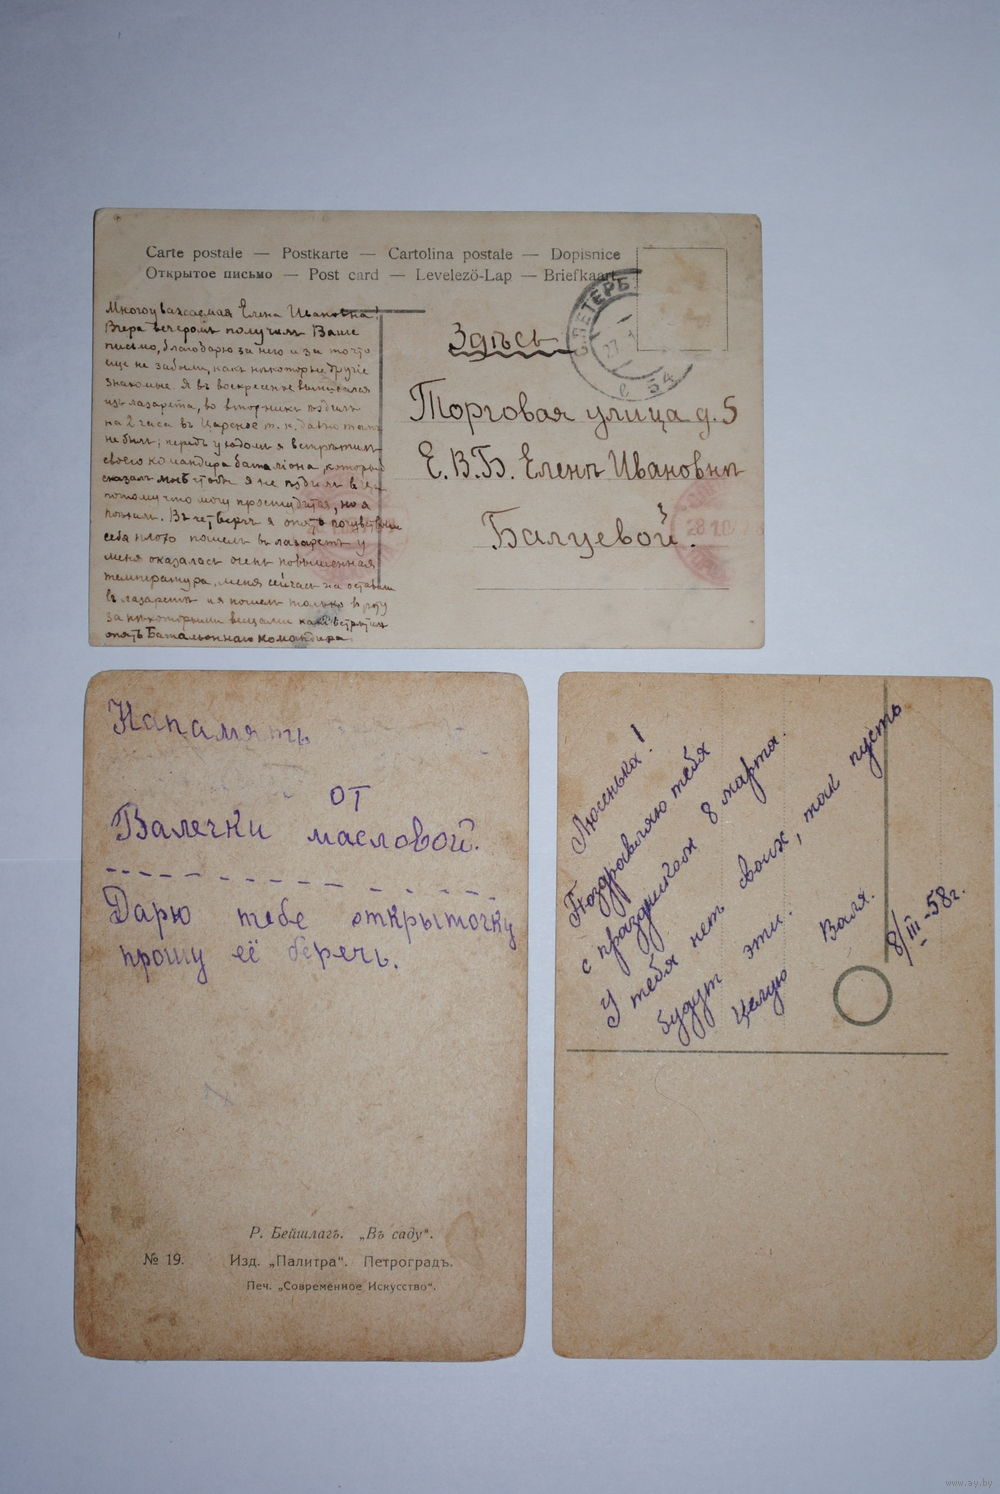 Carte postale — Postkarte — Cartolina postale — Dopisnice
Открытое письмо — Post card — Levelező-Lap — Briefkaart
Многоуважаемая Елена Ивановна!
Вчера вечеромъ получилъ Ваше
письмо, благодарю за него и за то что
еще не забыли, какъ нѣкоторые другіе
знакомые. Я въ воскресенье выписался
изъ лазарета, во вторникъ
на 2 часа въ Царское т. к. давно тамъ
не былъ; передъ я встрѣтилъ
своего командира баталіона, который
сказалъ мнѣ чтобы я не ѣздилъ въ
потому что могу простудится, но я
Въ четвергъ я опять почувствовалъ
себя плохо пошелъ въ лазаретъ у
меня оказалась очень повышенная
температура, меня сейчасъ же оставили
въ лазаретѣ и я пошелъ только въ роту
за нѣкоторыми вещами какъ встрѣтилъ
опять Баталіоннаго командира
С.ПЕТЕРБ
27
54
Здѣсь
Торговая улица д. 5
Е. В. Б. Еленѣ Ивановнѣ
Балуевой.
28.1.0
На память
от
Валечки масловой.
Дарю тебе открыточку
прошу её беречь.
Р. Бейшлагъ. „Въ саду“.
№ 19. Изд. „Палитра“. Петроградъ.
Печ. „Современное Искусство“.
Люсенька!
Поздравляю тебя
с праздником 8 марта.
У тебя нет своих, так пусть
будут эти.
Целую
Валя.
8/III-58г.
www.ay.by